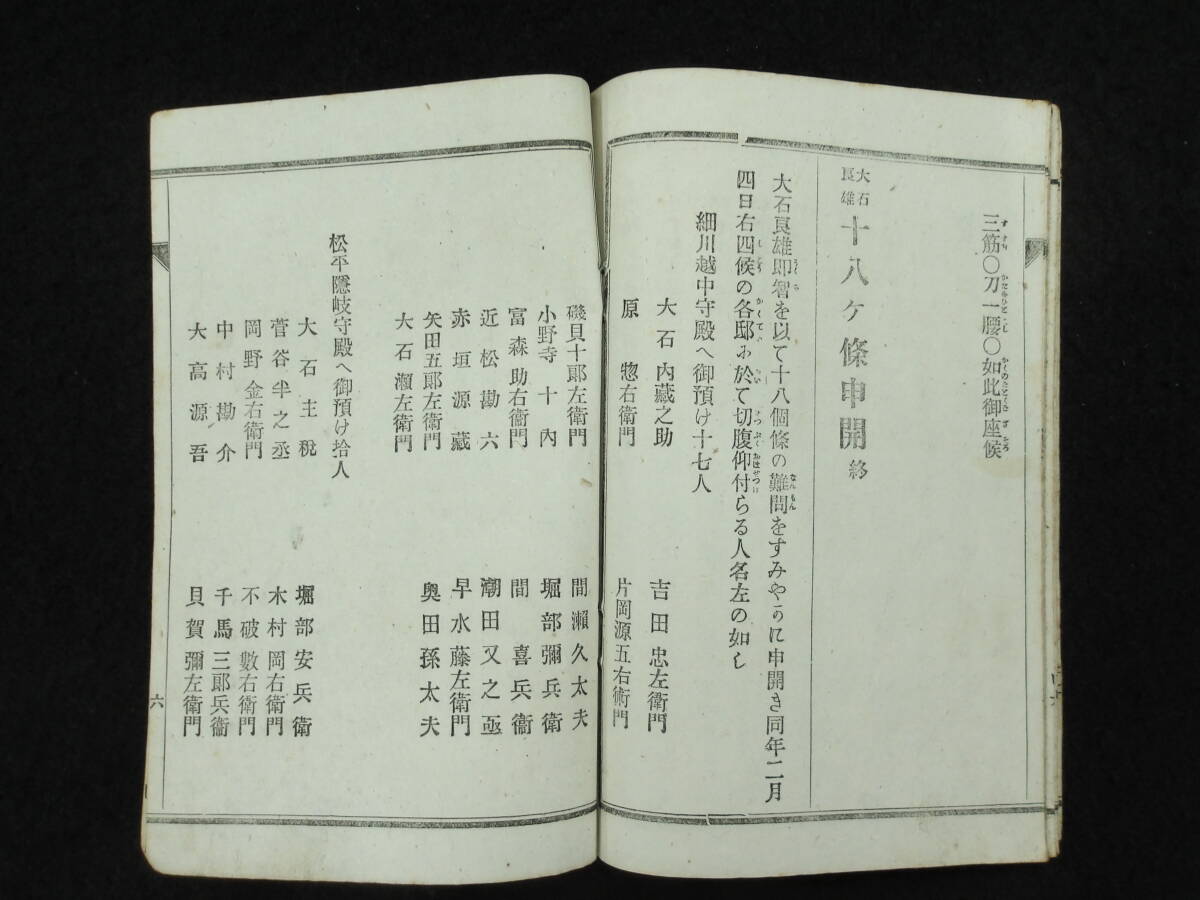 三筋〇刀一腰〇如此御座候
大石良雄 十八ヶ條申開 終
大石良雄即智を以て十八個條の難問をすみやかに申開き同年二月
四日右四候の各邸に於て切腹仰付らる人名左の如し
細川越中守殿へ御預け十七人
大石內藏之助 吉田忠左衛門
原惣右衛門 片岡源五右衛門
磯貝十郎左衛門 間瀨久太夫
小野寺十內 堀部彌兵衛
富森助右衛門 間喜兵衞
近松勘六 潮田又之亟
赤垣源藏 早水藤左衛門
矢田五郎左衛門 奧田孫太夫
大石瀨左衛門
松平隱岐守殿へ御預け拾人
大石主稅 堀部安兵衛
菅谷半之丞 木村岡右衛門
岡野金右衛門 不破數右衛門
中村勘介 千馬三郎兵衞
大高源吾 貝賀彌左衛門
六